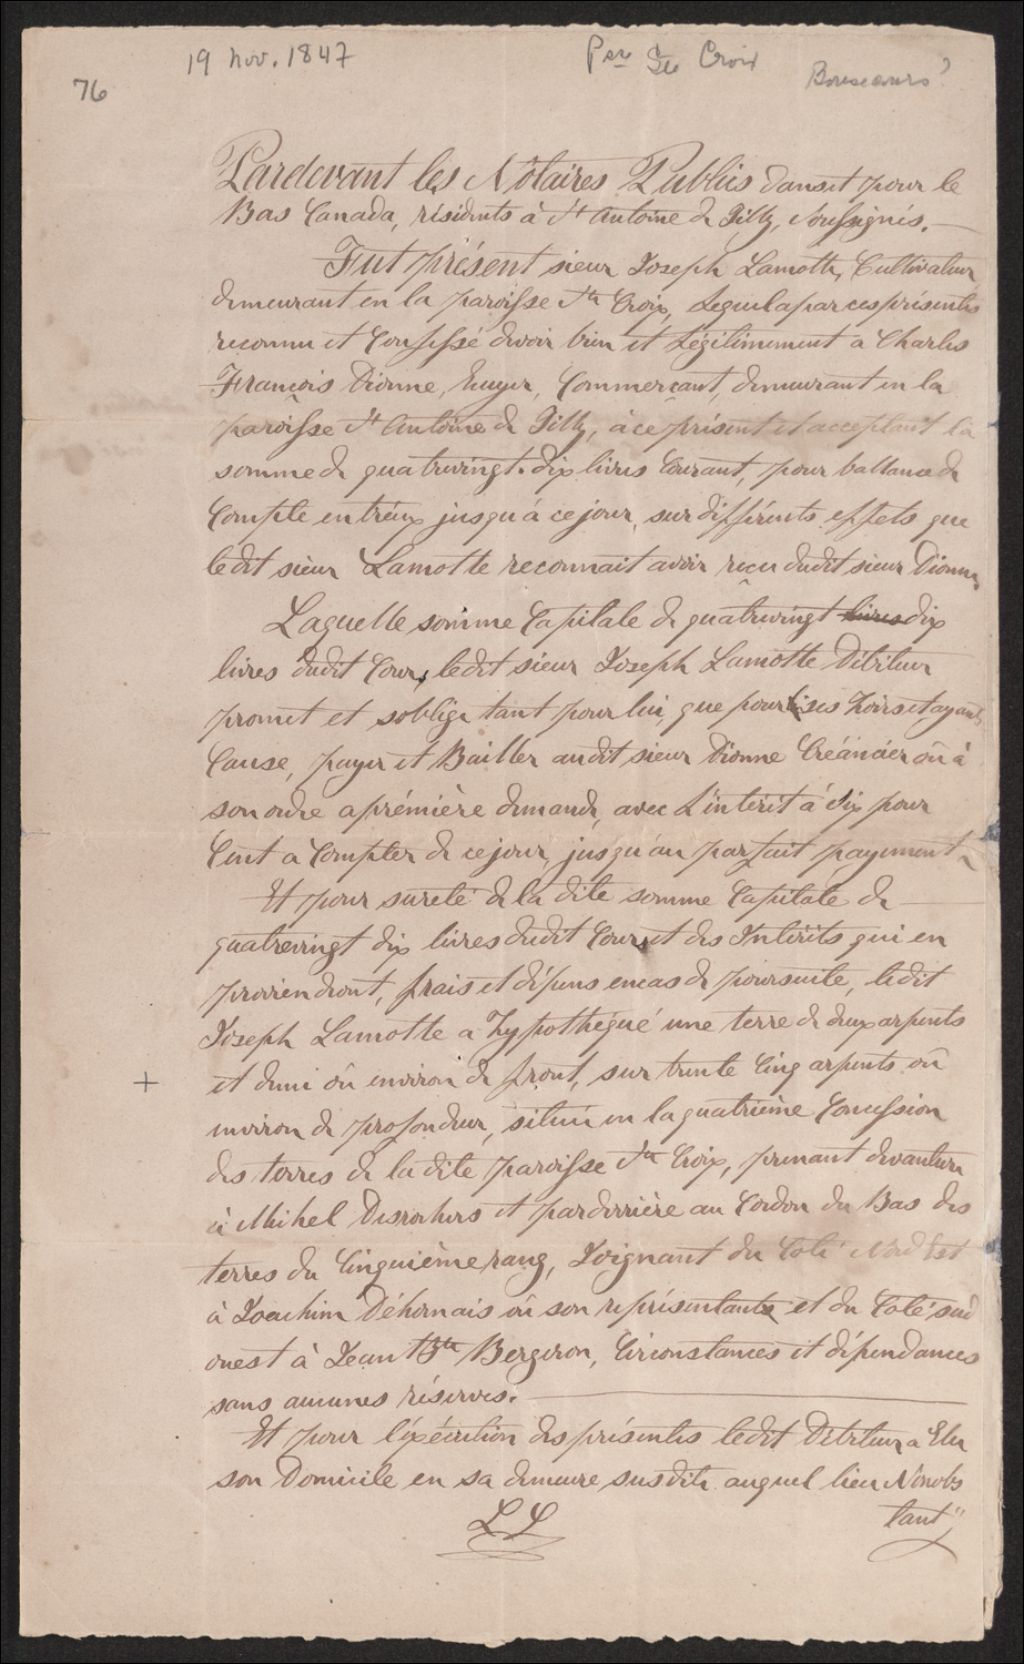 19 Nov. 1847
Per Ste Croix
Bonsecours?
76
Pardevant les Nôtaires Publics dans et pour le
Bas Canada, résidents à St Antoine de Tilly, soussignés.
Fut présent sieur Joseph Lamotte, Cultivateur
demeurant en la paroisse Ste Croix, Lequel a par ces présentes
reconnu et Confessé devoir bien et Légitimement a Charles
François Dionne, Ecuyer, Commerçant, demeurant en la
paroisse St Antoine de Tilly, à ce présent et acceptant la
somme de quatrevingt-dix livres Courant, pour ballance de
Compte entréux jusqu'à ce jour, sur différents effets que
ledit sieur Lamotte reconnait avoir reçu dudit sieur Dionne,
Laquelle somme Capitale de quatrevingt livres dix
livres dudit Cours, ledit sieur Joseph Lamotte Débiteur
promet et soblige tant pour lui, que pour ses hoirs et ayant
Cause, payer et Bailler audit sieur Dionne Créancier oû à
son ordre a prémière demande, avec L'intérit à six pour
Cent a Compter de ce jour, jusqu'au parfait payement,
Et pour sureté de la dite somme Capitale de
quatrevingt dix livres dudit Cours et des Intérits qui en
proviendront, frais et dépens encas de poursuite, ledit
Joseph Lamotte a hypothéqué une terre de deux arpents
et demi oû environ de front, sur trente Cinq arpents oû
+
environ de profondeur, située en la quatrième Concession
des terres de la dite paroisse Ste Croix, prenant devanture
à Michel Desrochers et par derrière au Cordon du Bas des
terres du Cinquième rang, Joignant du Coté Nord Est
à Joachim Déhornais oû son représentants et du Coté sud
ouest à Jean Bte Bergeron, Circonstances et dépendances
sans aucunes réserves.
Et pour l'éxécution des présentes ledit Débiteur a Elu
son Domicile en sa demeure susdite auquel lieu Nonobs
tant"
L L